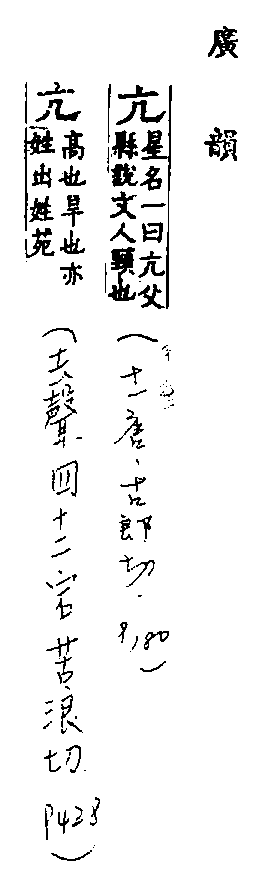 廣韻
亢 星名一曰亢父
縣說文人頸也
(十一唐、古郎切. P,180)
亢 高也旱也亦
姓出姓苑
(去聲四十二宕苦浪切 P428)